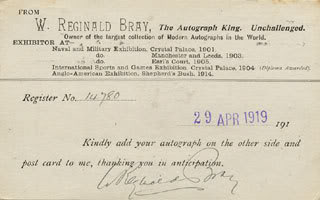 FROM
W. REGINALD BRAY, The Autograph King. Unchallenged.
Owner of the largest collection of Modern Autographs in the World.
EXHIBITOR AT
Naval and Military Exhibition, Crystal Palace, 1901.
do. Manchester and Leeds, 1903.
do. Earl's Court, 1905.
International Sports and Games Exhibition, Crystal Palace, 1904 (Diploma Awarded)
Anglo-American Exhibition, Shepherd's Bush, 1914.
Register No. 14780
29 APR 1919 191
Kindly add your autograph on the other side and
post card to me, thanking you in anticipation.
W Reginald Bray